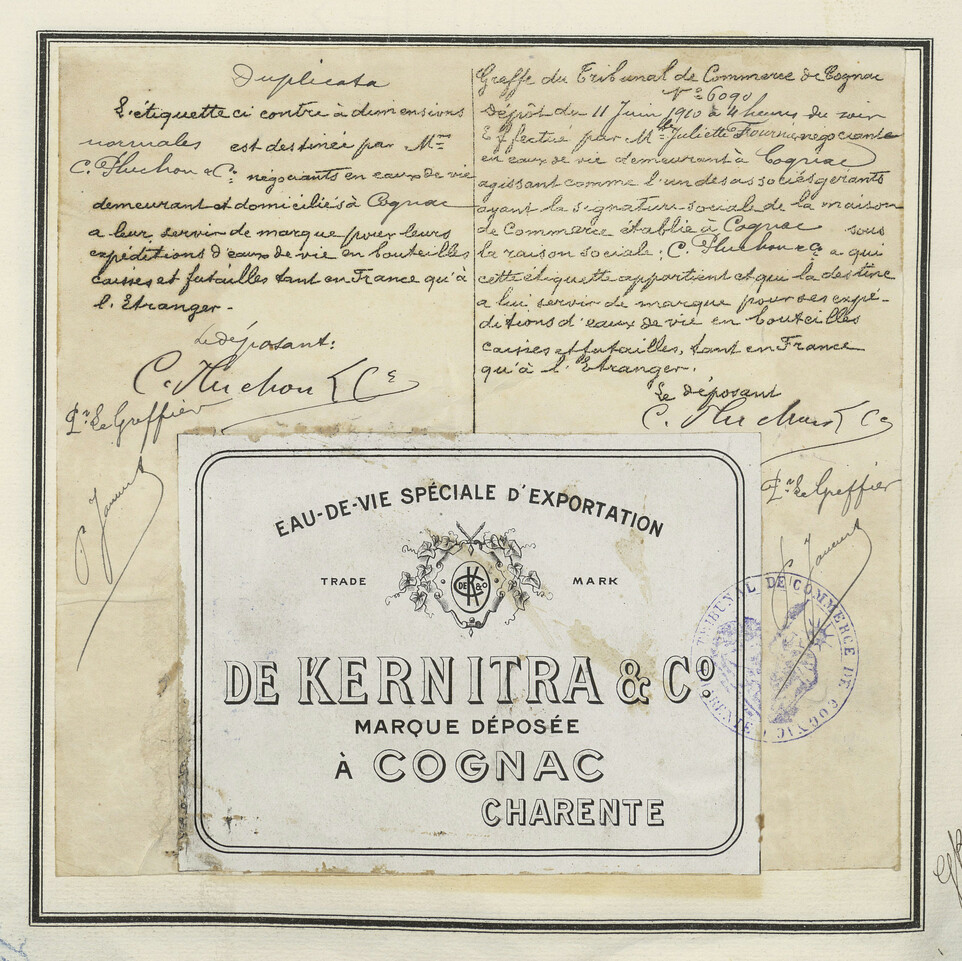 Duplicata
L'étiquette ci contre à dimensions
normales est destinée par Mrs
C. Pluchon & Ce négociants en eaux de vie
demeurant et domiciliés à Cognac
a leur servir de marque pour leurs
expéditions d'eaux de vie en bouteilles
caisses et futailles tant en France qu'à
l'Etranger.
Le déposant:
C. Pluchon & Ce
Pr Le Greffier
Greffe du Tribunal de Commerce de Cognac
No 6090
Dépôt du 11 Juin 1910 à 4 heures du soir
Effectué par Mlle Juliette négociante
en eaux de vie demeurant à Cognac
agissant comme l'un des associés gérants
ayant la signature sociale de la maison
de Commerce établie à Cognac sous
la raison sociale: C. Pluchon & Ce a qui
cette étiquette appartient et qui la destine
a lui servir de marque pour ses expé-
ditions d'eaux de vie en bouteilles
caisses et futailles, tant en France
qu'à l'Etranger.
Le déposant
C. Pluchon & Ce
Pr Le Greffier
EAU-DE-VIE SPÉCIALE D'EXPORTATION
TRADE MARK
DE K & Co
DE KERNITRA & Co
MARQUE DÉPOSÉE
À COGNAC
CHARENTE
TRIBUNAL DE COMMERCE DE COGNAC